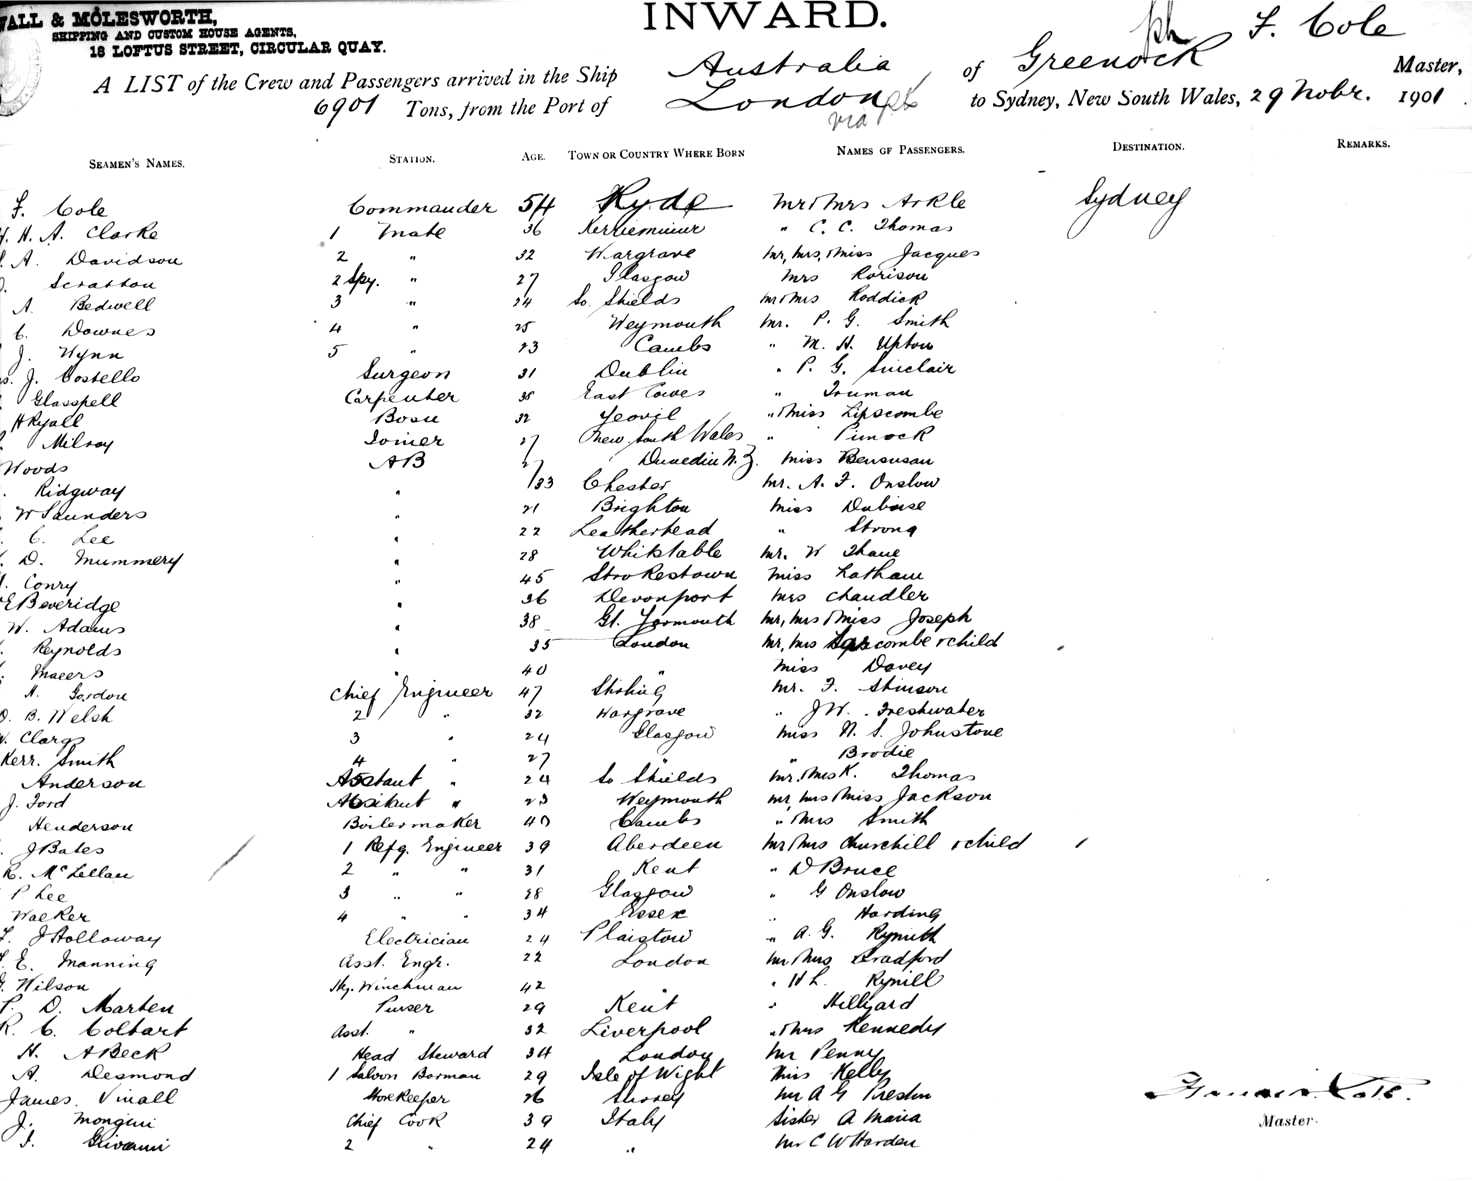 WALL & MOLESWORTH,
SHIPPING AND CUSTOM HOUSE AGENTS,
18 LOFTUS STREET, CIRCULAR QUAY.
INWARD.
F. Cole
A LIST of the Crew and Passengers arrived in the Ship Australia, of Greenock Master,
6901 Tons, from the Port of London to Sydney, New South Wales, 29 Nobr. 1901.
via
SEAMEN'S NAMES. STATION. AGE. TOWN OR COUNTRY WHERE BORN NAMES OF PASSENGERS. DESTINATION. REMARKS.
F. Cole Commander 54 Ryde Mr & Mrs Arkle Sydney
H. A. Clarke 1 Mate 36 " C. C. Thomas
A. Davidson 2 " 32 Wargrave Mr, Mrs, & Miss Jacques
Scratton 2 Spy. " 27 Glasgow Mrs Rorison
A. Bedwell 3 " 24 So. Shields Mr & Mrs Roddick
C. Downes 4 " 25 Weymouth Mr. P. G. Smith
J. Wynn 5 " 23 Cambs " M. H. Upton
J. Costello Surgeon 31 Dublin " P. G. Sinclair
Glasspell Carpenter 35 East Cowes " Truman
H Ryall Bosn 32 Yeovil " & Miss Lipscombe
Milroy Joiner 27 New South Wales " Pinnock
Woods AB 27 Dunedin N.Z. Miss Bensusan
Ridgway " 33 Chester Mr. A. F. Onslow
W Saunders " 21 Brighton Miss Duboise
C. Lee " 22 Leatherhead " Strong
D. Mummery " 28 Whitstable Mr. W Thane
Conry " 45 Strokestown Miss Latham
E Beveridge " 36 Devonport Mrs Chandler
W. Adams " 38 Gt. Yarmouth Mr, Mrs & Miss Joseph
Reynolds " 35 London Mr, Mrs Lipscombe & child
Maeers " 40 " Miss Davey
A. Gordon Chief Engineer 47 Stirling Mr. F. Stinson
B. Welsh 2 " 32 Wargrave " J W. Freshwater
W. Clargs 3 " 24 Glasgow Miss N. S. Johnstone
Kerr. Smith 4 " 27 " " Brodie
Anderson Asstant " 24 So Shields Mr. Mrs K. Thomas
J. Ford Assistant " 23 Weymouth Mr, Mrs & Miss Jackson
Henderson Boilermaker 40 Cambs " & Mrs Smith
J Bates 1 Refg. Engineer 39 Aberdeen Mr & Mrs Churchill & child
R. McLellan 2 " " 31 Kent " D Bruce
P Lee 3 " " 28 Glasgow " G Onslow
Walker 4 " " 34 Essex " Harding
F. J Holloway Electrician 24 Plaistow " A. G.
E. Manning Asst. Engr. 22 London Mr Mrs Bradford
G. Wilson Winchman 42 " " H L. Rynill
P. D. Marten Purser 29 Kent " Hillyard
R. C. Coltart Asst. " 32 Liverpool " & Mrs Kennedy
H. A Beck Head Steward 34 London Mr Penny
A. Desmond 1 Saloon Barman 29 Isle of Wight Miss Kelly
James. Vinall Storekeeper 26 Surrey Mr A G Preston
J. Mongini Chief Cook 39 Italy Sister A Maria
Giovanni 2 " 24 " Mr C W Harden
Master.